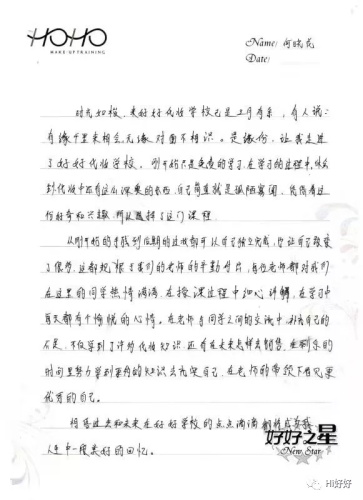 HOHO
MAKE-UP TRAINING
Name: 何晓花
Date:
时光如梭,来好好化妆学校已是三月有余,有人说:
有缘千里来相会,无缘对面不相识。是缘份,让我走进
了好好化妆学校。刚开始只是来学的学习,在学习的过程中,体会
到化妆中还有这么深奥的东西,自己简直就是孤陋寡闻,凭借着这
份好奇和兴趣,所以选择了这门课程
从刚开始的
到后期的
都可以自己独立完成,也让自己改变
了很多,这都
于我们的老师的辛勤付出,每位老师都对我们
在这里的同学热情满满,在授课过程中细心讲解,在学习中
每天都有个愉悦的心情。在老师与同学之间的交流中,补充自己的
不足,不仅学到了许多化妆知识,还有在未来怎样去销售,在剩余的
时间里努力学到更多的知识去充实自己,在老师的带领下遇见更
优秀的自己。
相信过去和未来在好好学校的点点滴滴都将成为我
人生中一段美好的回忆。
好好之星
New Star
Hi好好